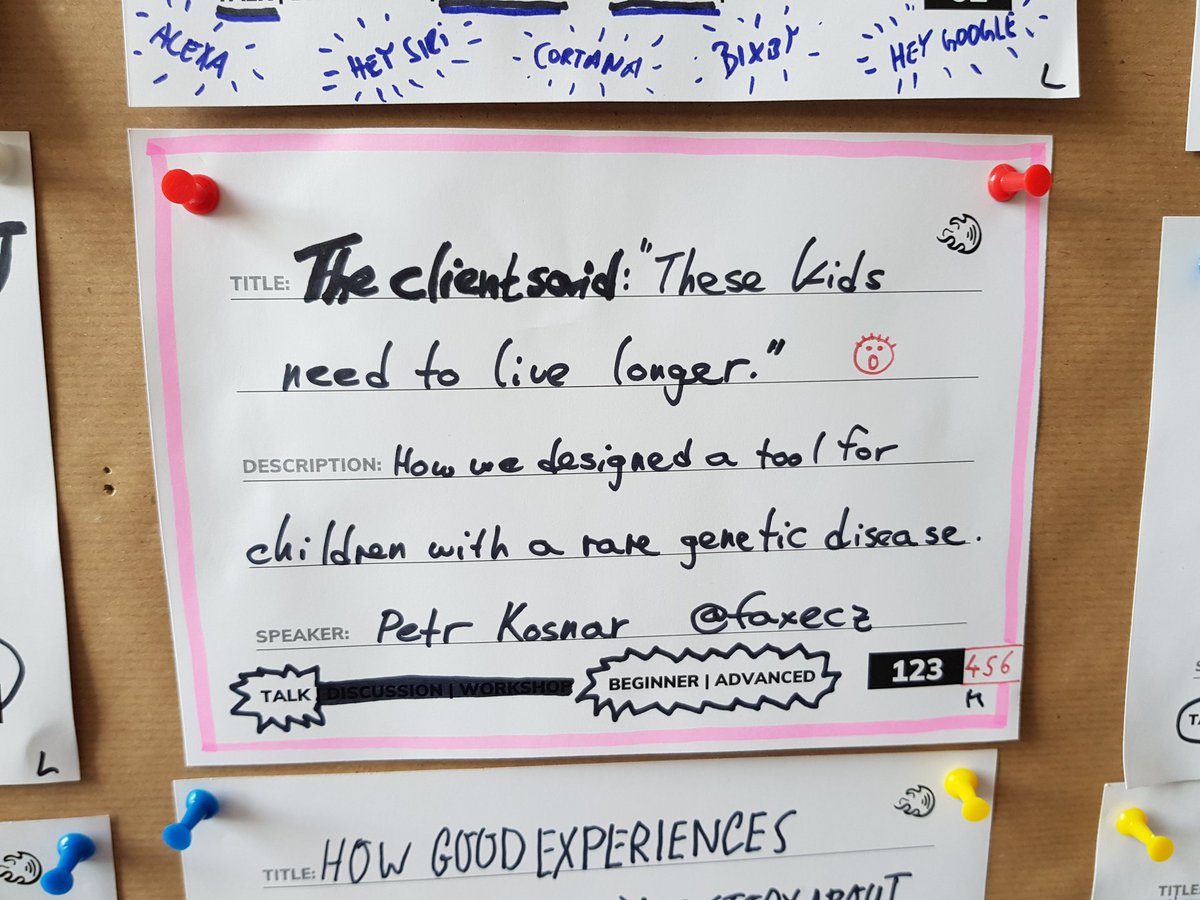 ALEXA HEY SIRI CORTANA BIXBY HEY GOOGLE
L
TITLE: The client said: "These kids
need to live longer."
DESCRIPTION: How we designed a tool for
children with a rare genetic disease.
SPEAKER: Petr Kosnar @faxecz
TALK DISCUSSION | WORKSHOP BEGINNER | ADVANCED 123 456
M
L
TITLE: HOW GOOD EXPERIENCES
ABOUT
TITLE: